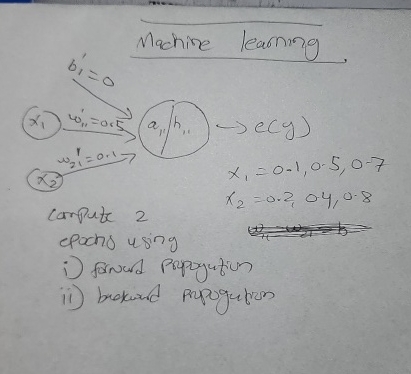 Machine learning
b₁' = 0
x₁ w₁₁' = 0.5 a₁₁ / h₁₁ → e(y)
w₂₁' = 0.1
x₂
x₁ = 0.1, 0.5, 0.7
x₂ = 0.2, 0.4, 0.8
compute 2
epochs using
i) forward propogution
ii) backward propogution